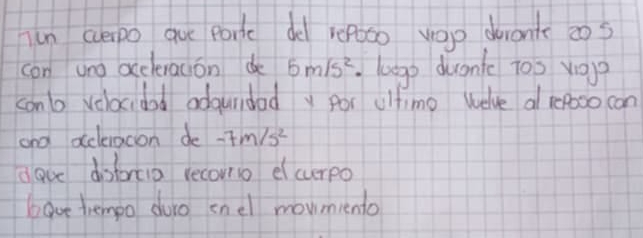 1un cuerpo que parte del reposo viaja durante 20 s
con una aceleración de 5 m/s². luego durante 10s viaja
con la velocidad adquiridad y por ultimo vuelve al reposo con
una aceleracion de -7m/s²
a que distancia recorrio el cuerpo
b que tiempo duro en el movimiento